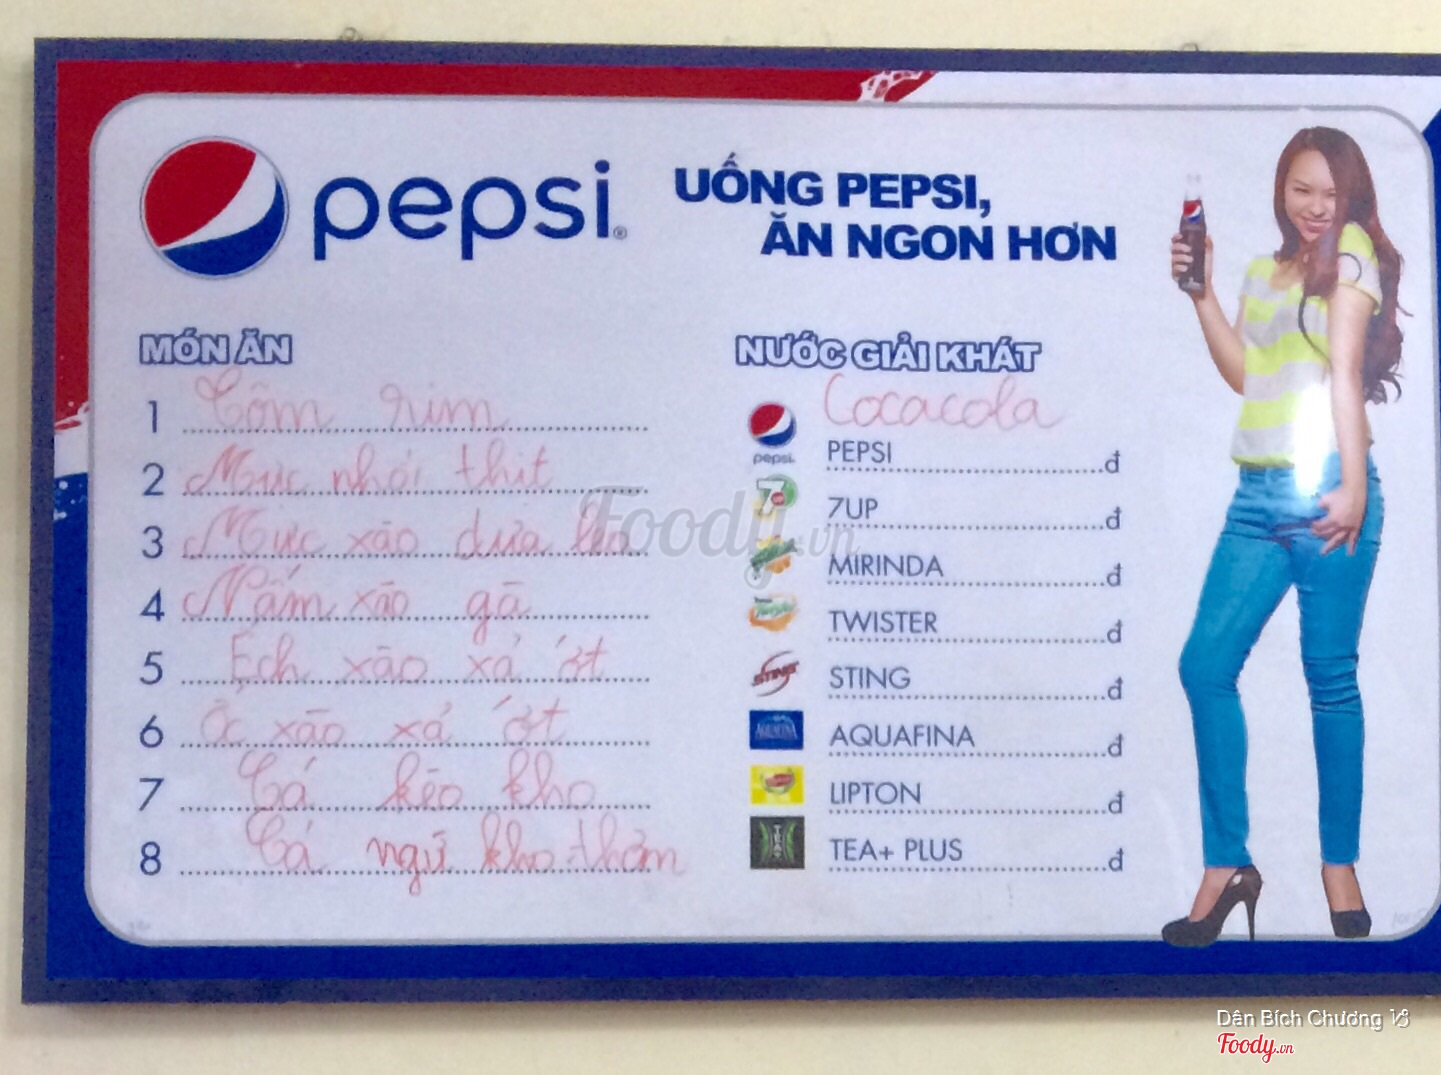 pepsi®
UỐNG PEPSI,
ĂN NGON HƠN
MÓN ĂN
1 Tôm rim
2 Mực nhồi thịt
3 Mực xào dưa leo
4 Nấm xào gà
5 Ếch xào xả ớt
6 Ốc xào xả ớt
7 Cá kèo kho
8 Cá ngừ kho thơm
NƯỚC GIẢI KHÁT
Cocacola
pepsi. PEPSI đ
7UP đ
MIRINDA đ
TWISTER đ
STING STING đ
AQUAFINA AQUAFINA đ
LIPTON đ
TEA+ TEA+ PLUS đ
Foody.vn
Dân Bích Chương
Foody.vn